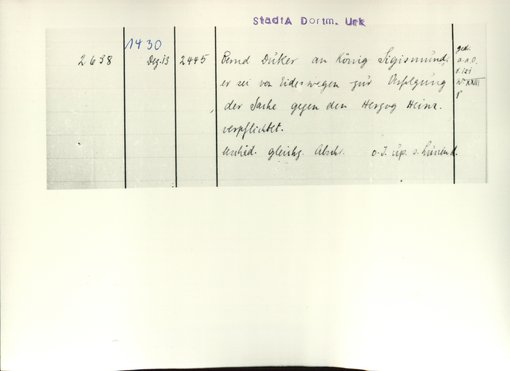 StadtA Dortm. Urk
1430
2638 Dez. 13 2445 Bernd Düker an König Sigismund:
er sei von Eides wegen zur Verfolgung
der Sache gegen den Herzog Heinr.
verpflichtet.
gleichz. Absch.
gedr.
a. a. O.